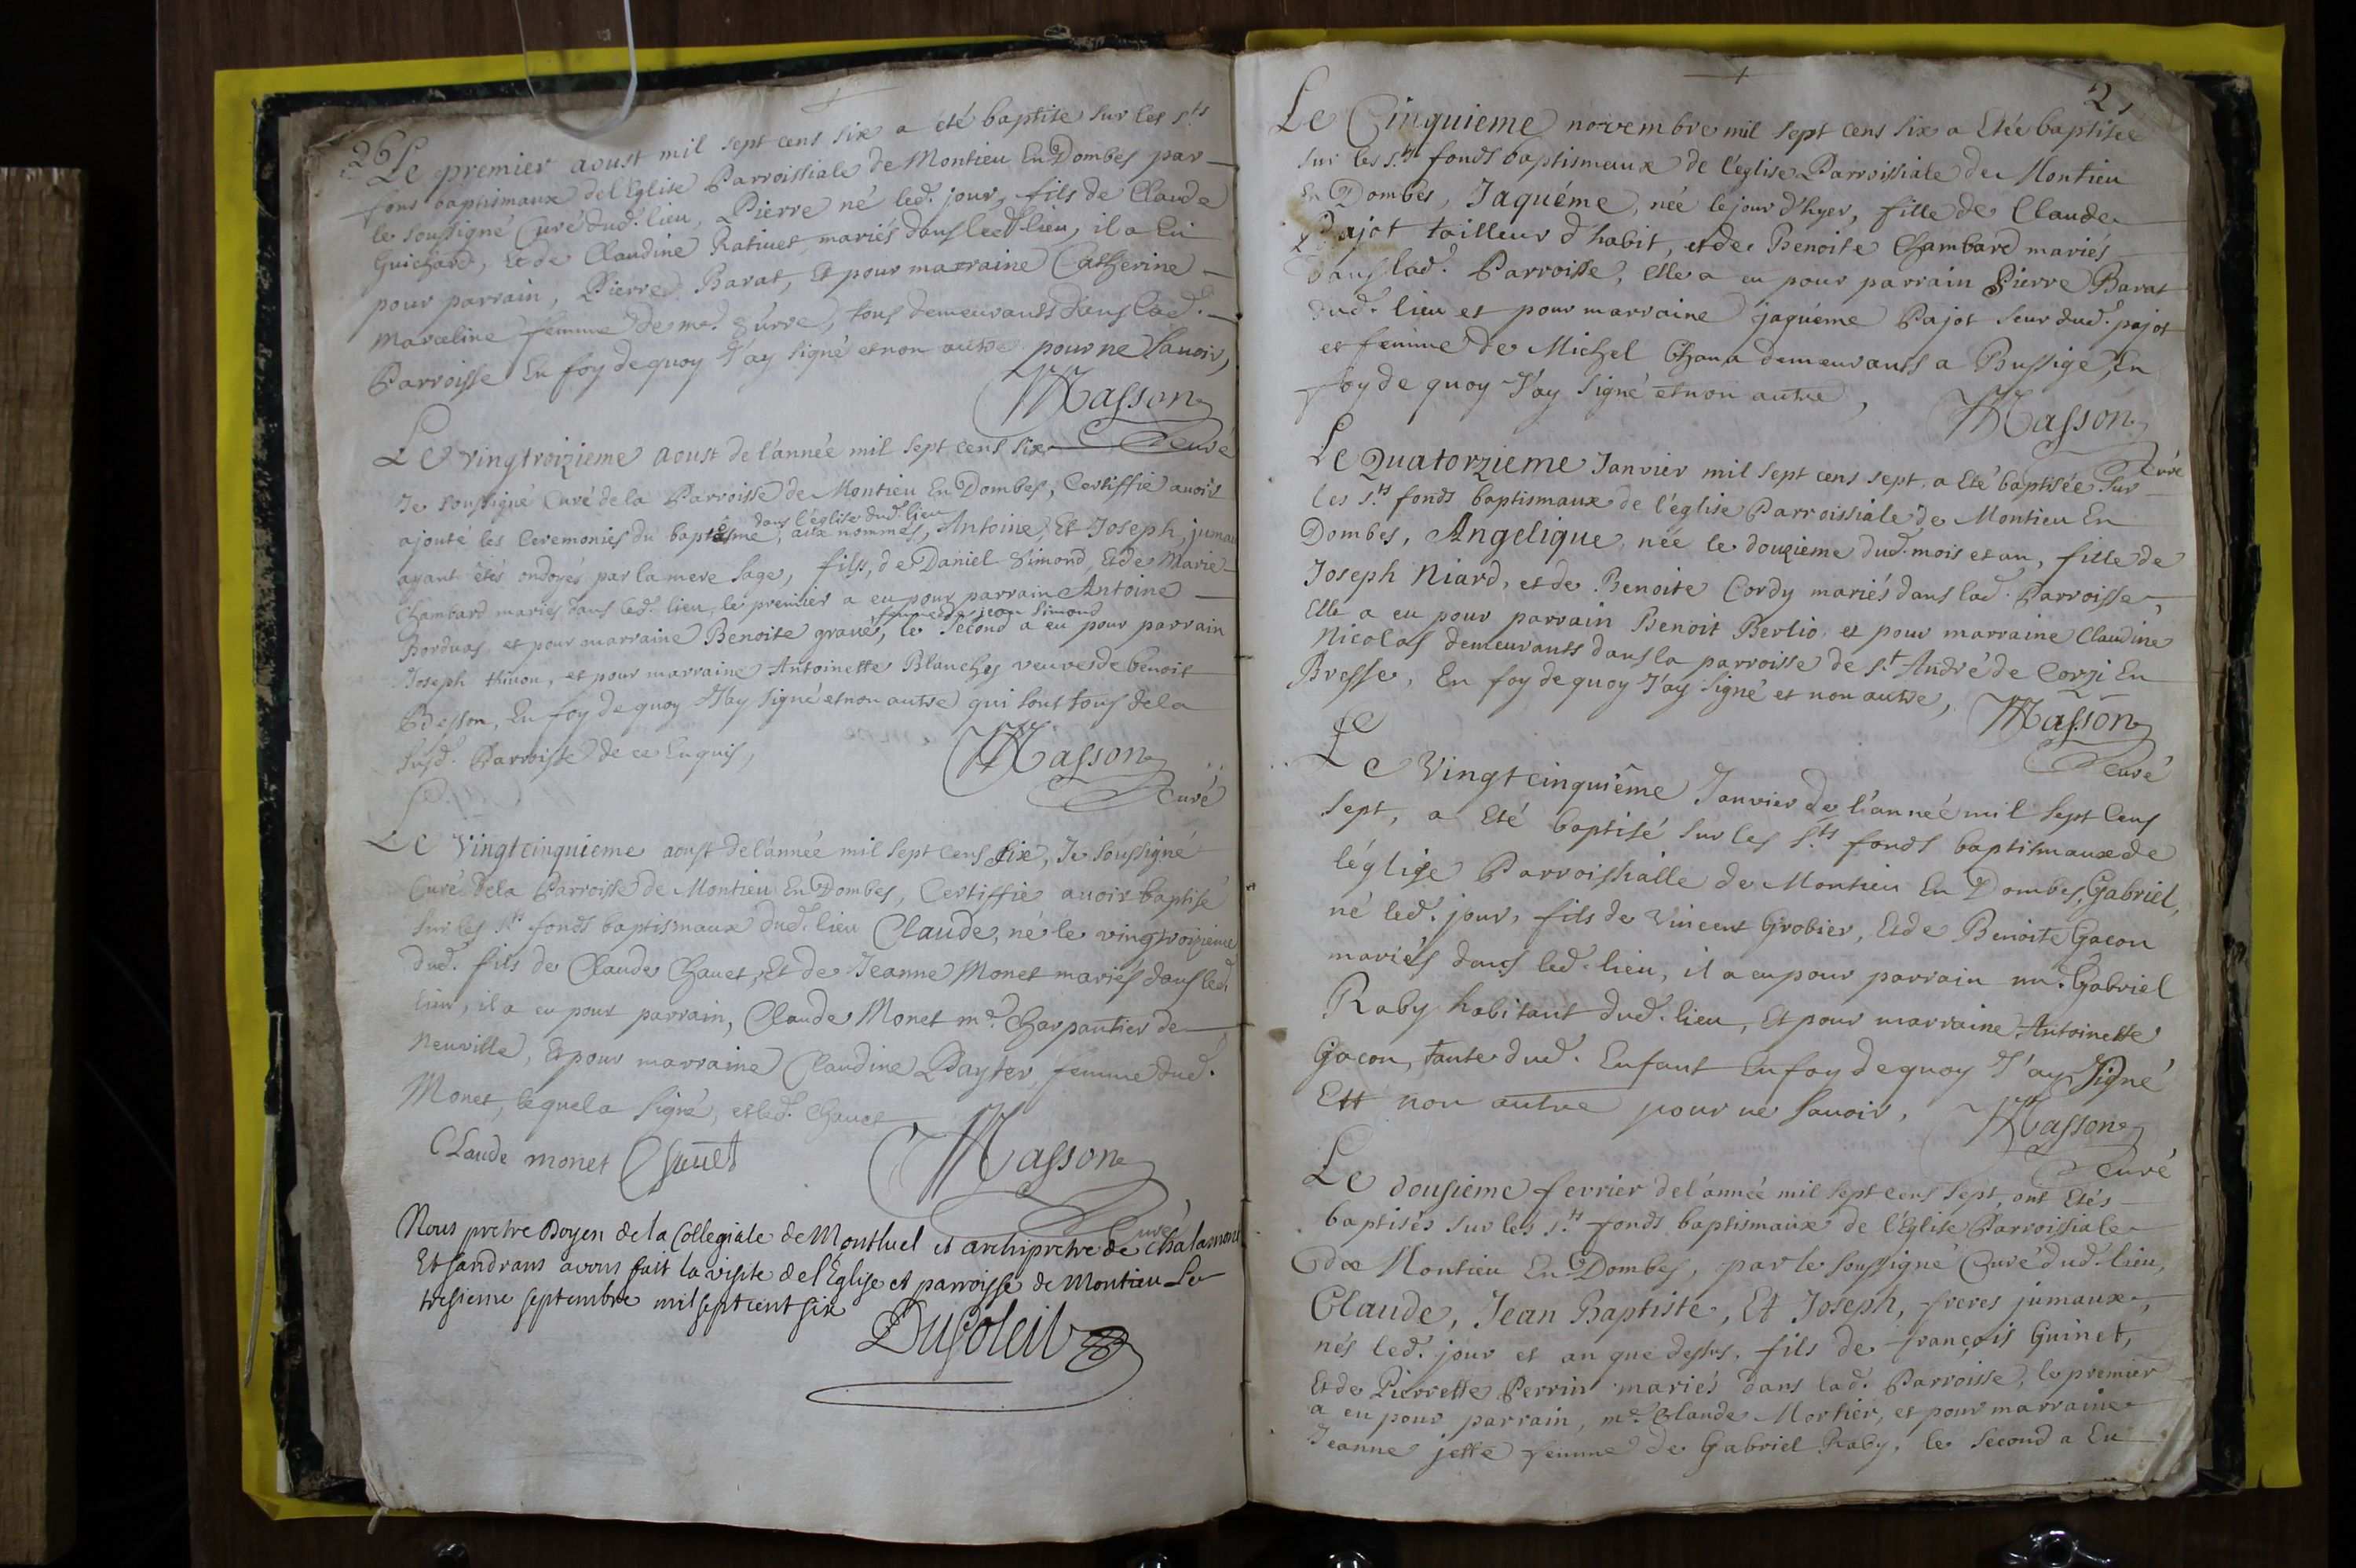 26 Le premier aoust mil sept cens six a eté baptisé sur les s.ts
fons baptismaux de l'Eglise Parroissiale de Montieu En Dombes par
le soussigné Curé dud. lieu, Pierre né led. jour, fils de Claude
Guichard, Et de Claudine Ratinet mariés dans led. lieu, il a Eu
pour parrain, Pierre Barat, Et pour marraine Catherine
Marceline femme de me. Surre, tous demeurants dans lad.
Parroisse En foy de quoy J'ay signé et non autre pour ne savoir,
Masson
Curé
Le vingtroizieme aoust de l'année mil sept cens six
Je soussigné Curé de la Parroisse de Montieu En Dombes, Certiffie avoir
dans l'église dud. lieu
ajouté les Ceremonies du baptesme, aux nommés, Antoine, Et Joseph, jumaux
ayant étés ondoyés par la mere sage, fils, de Daniel Simond, Et de Marie
Chambard mariés dans led. lieu, le premier a eu pour parrain Antoine
femme de jean Simond
Borduas, et pour marraine Benoite gravé, le second a eu pour parrain
Joseph thinon, et pour marraine Antoinette Blanches veuve de benoit
Besson, En foy de quoy J'ay signé et non autre qui sont tous de la
susd. Parroisse de ce Enquis,
Masson
Curé
Le Vingtcinquieme aoust de l'année mil sept cens six, Je soussigné
Curé de la Parroisse de Montieu En Dombes, Certiffie avoir baptisé
sur les s.ts fonds baptismaux dud. lieu Claude, né le vingtroizieme
dud. fils de Claude Chavet, Et de Jeanne Monet mariés dans led.
lieu, il a eu pour parrain, Claude Monet me. Charpantier de
Neuville, Et pour marraine Claudine Payter femme dud.
Monet, lequel a signé, et led. Chavet
Claude monet Chavet
Masson
Curé
Nous pretre Doyen de la Collegiale de Montluel et archipretre de Chalamont
Et sandrans avons fait la visite de l'Eglise et parroisse de Montieu Le
tresieme septembre mil sept cent six
Dusoleil
2
Le Cinquieme novembre mil sept cens six a Etée baptisée
sur les s.ts fonds baptismaux de l'église Parroissiale de Montieu
En Dombes, Jaquéme, née le jour d'hyer, fille de Claude
Pajot tailleur d'habit, et de Benoite Chambard mariés
dans lad. Parroisse, Elle a eu pour parrain Pierre Barat
dud. lieu et pour marraine jaquéme Pajot seur dud. pajot
et femme de Michel Chana demeurants a Bussige, En
foy de quoy J'ay signé et non autre,
Masson
Curé
Le Quatorzieme Janvier mil sept cens sept, a Eté baptisée sur
les s.ts fonds baptismaux de l'église Parroissiale de Montieu En
Dombes, Angelique, née le douzieme dud. mois et an, fille de
Joseph Niard, et de Benoite Cordy mariés dans lad. Parroisse,
Elle a eu pour parrain Benoit Berlio, et pour marraine Claudine
Nicolas demeurants dans la parroisse de s.t André de Corzi En
Bresse, En foy de quoy J'ay signé et non autre,
Masson
Curé
Le Vingtcinquiême Janvier de l'année mil sept Cens
sept, a Eté baptisé sur les s.ts fonds baptismaux de
l'église Parroissialle de Montieu En Dombes, Gabriel,
né led. jour, fils de Vincent Grobier, Et de Benoite Gacon
mariés dans led. lieu, il a eu pour parrain me. Gabriel
Raby habitant dud. lieu, Et pour marraine Antoinette
Gacon, tante dud. Enfant En foy de quoy J'ay Signé
Ett non autre pour ne savoir,
Masson
Curé
Le dousieme fevrier de l'année mil sept cens sept, ont Etés
baptisés sur les s.ts fonds baptismaux de l'Eglise Parroissiale
de Montieu En Dombes, par le soussigné Curé dud. lieu,
Claude, Jean Baptiste, Et Joseph, freres jumaux,
nés led. jour et an que dessus, fils de françois Guinet,
Et de Pierrette Perrin mariés dans lad. Parroisse, le premier
a eu pour parrain, me. Claude Mortier, et pour marraine
Jeanne jette femme de Gabriel Raby, le second a Eu